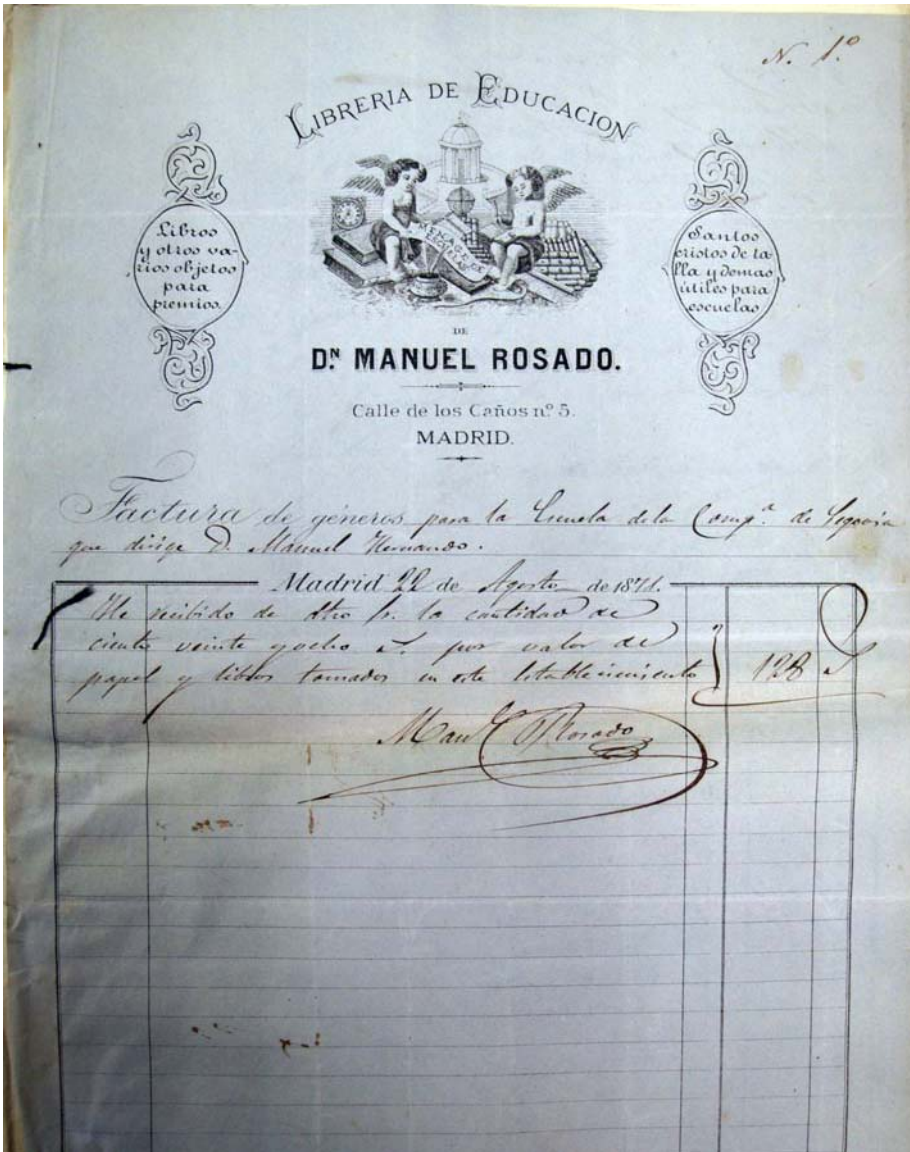 N. 1º
LIBRERIA DE EDUCACION
Libros
y otros va-
rios objetos
para
premios.
MENAGE DE
ESCUELAS
Santos
cristos de ta-
lla y demas
útiles para
escuelas
DE
D.N MANUEL ROSADO.
Calle de los Caños n.º 5.
MADRID.
Factura de géneros para la Escuela de la Comp.ª de Segovia
que dirige D. Manuel Hernando.
Madrid 22 de Agosto de 18
He recibido de dho Sr. la cantidad de
ciento veinte y ocho por valor de
papel y libros tomados en este Establecimiento 128
Man.l Rosado